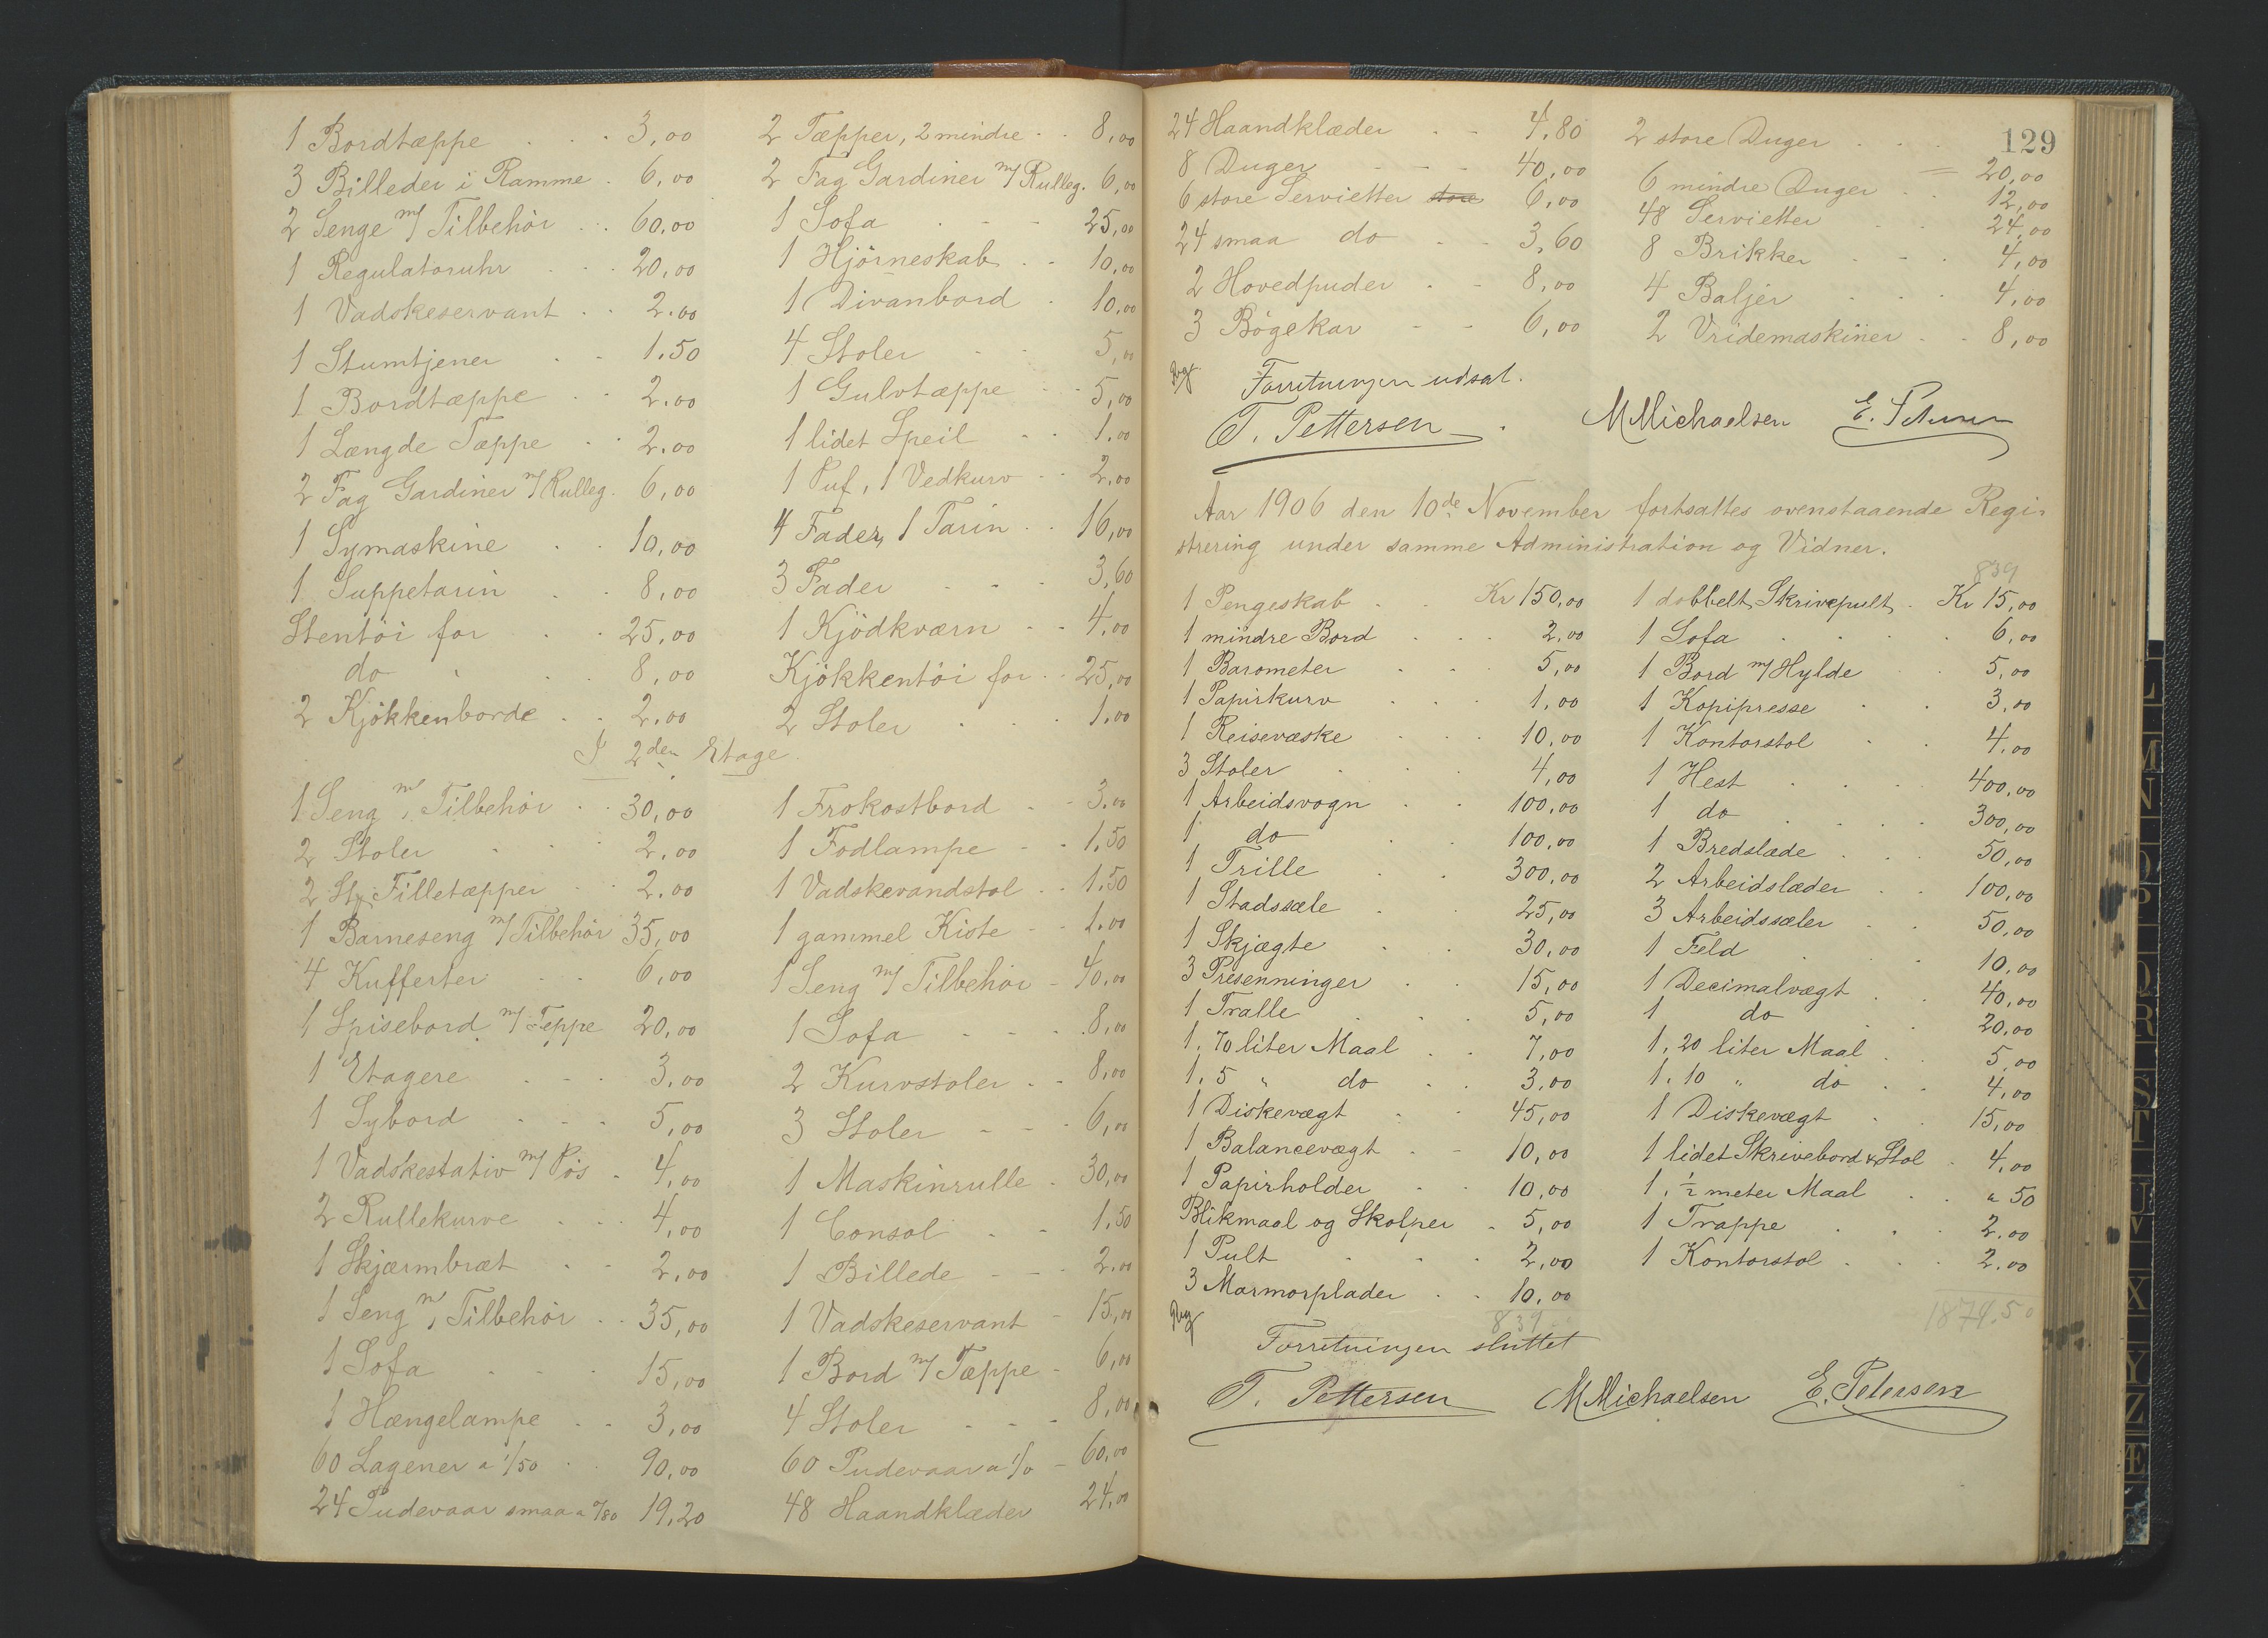 1 Bordtæppe . . . 3,00
3 Billeder i Ramme . 6,00
2 Senge m/ Tilbehör . . 60,00
1 Regulatoruhr . . . 20,00
1 Vadskeservant . . 2.00
1 Stumtjener . . 1.50
1 Bordtæppe . . 2.00
1 Længde Tæppe . . 2.00
2 Fag Gardiner m/ Rulleg. 6,00
1 Symaskine . . 10,00
1 Suppetarin . . 8,00
Stentöi for . . 25,00
do . . 8,00
2 Kjökkenborde . . 2.00
2 Tæpper, 2 mindre . . 8,00
2 Fag Gardiner m/ Rulleg. 6,00
1 Sofa . - - 25,00
1 Hjörneskab . . 10,00
1 Divanbord . 10,00
4 Stoler - - 5,00
1 Gulvtæppe - - 5,00
1 lidet Speil - . 1.00
1 Puf, 1 Vedkurv - . 2,00
4 Fader, 1 Tarin . . 16,00
3 Fader - - . 3,60
1 Kjödkværn - . 4.00
Kjökkentöi for . . 25,00
2 Stoler . . . 1.00
I 2den Etage
1 Seng m/ Tilbehör . . 30,00
2 Stoler . . . 2.00
2 Stk Filletæpper . . 2.00
1 Barneseng m/ Tilbehör 35,00
4 Kufferter . 6,00
1 Spisebord m/ Teppe 20,00
1 Etagere . - . 3,00
1 Sybord . - . 5,00
1 Vadskestativ m/ Pös . 4,00
2 Rullekurve . . . 4,00
1 Skjærmbræt . - 2,00
1 Seng m/ Tilbehör . . 35,00
1 Sofa . . . 15,00
1 Hængelampe . . 3,00
60 Lagener a 1/50 . . 90,00
24 Pudevaar smaa a 0/80 19,20
1 Frokostbord . - 3.00
1 Fodlampe - - 1.50
1 Vadskevandstol . . 1.50
1 gammel Kiste - - 1.00
1 Seng m/ Tilbehör - 40,00
1 Sofa - - . 8,00
2 Kurvstoler . . 8,00
3 Stoler - - - 6,00
1 Maskinrulle . 30,00
1 Consol . - 1.50
1 Billede - - - 2.00
1 Vadskeservant - 15,00
1 Bord m/ Tæppe - 6,00
4 Stoler - - - 8,00
60 Pudevaar a 1/0 - 60,00
48 Haandklæder 24,00
129
24 Haandklæder . - 4.80
8 Duger - - - 40,00
6 store Servietter store 6,00
24 smaa do . - 3,60
2 Hovedpuder . - 8,00
3 Bögekar - - 6,00
2 store Duger . . . = 20,00
6 mindre Duger . . 12,00
48 Servietter . . 24,00
8 Brikker . . . 4,00
4 Baljer . . . 4,00
2 Vridemaskiner . . 8,00
Forretningen udsat.
T. Pettersen . MMichaelsen E. Petersen
Aar 1906 den 10de November fortsattes ovenstaaende Regi-
strering under samme Administration og Vidner.
839
1 Pengeskab . . Kr 150,00
1 mindre Bord . . . 2,00
1 Barometer . . . 5,00
1 Papirkurv . . . 1,00
1 Reisevæske . . . 10,00
3 Stoler . . . 4,00
1 Arbeidsvogn . . 100,00
1 do . . 100,00
1 Trille . . 300,00
1 Stadssæle . . 25,00
1 Skjægte . . 30,00
3 Presenninger . . 15,00
1 Tralle . . . 5,00
1. 70 liter Maal . . 7,00
1. 5 " do . . 3.00
1 Diskevægt . . 45,00
1 Balancevægt . - 10,00
1 Papirholder . . 10,00
Blikmaal og Skolper . 5,00
1 Pult . . . 2,00
3 Marmorplader . . 10,00
839
1 dobbelt Skrivepult . Kr 15,00
1 Sofa . . . . 6,00
1 Bord m/ Hylde . . 5,00
1 Kopipresse . . 3,00
1 Kontorstol . . 4.00
1 Hest . . . 400,00
1 do . . . . 300,00
1 Bredslæde . . . 50,00
2 Arbeidslæder . . 100,00
3 Arbeidssæler . . 50,00
1 Feld . . . 10,00
1 Decimalvægt . . 40,00
1 do . . 20.00
1. 20 liter Maal . . 5,00
1. 10 " do . . 4,00
1 Diskevægt . . 15,00
1 lidet Skrivebord & Stol . 4,00
1. 1/2 meter Maal . . " 50
1 Trappe . . . 2.00
1 Kontorstol . . . 2.00
1874.50
Forretningen sluttet
T. Pettersen MMichaelsen E. Petersen
L
M
N
O
P
Q
R
S
T
U
V
X
Y
Z
Æ